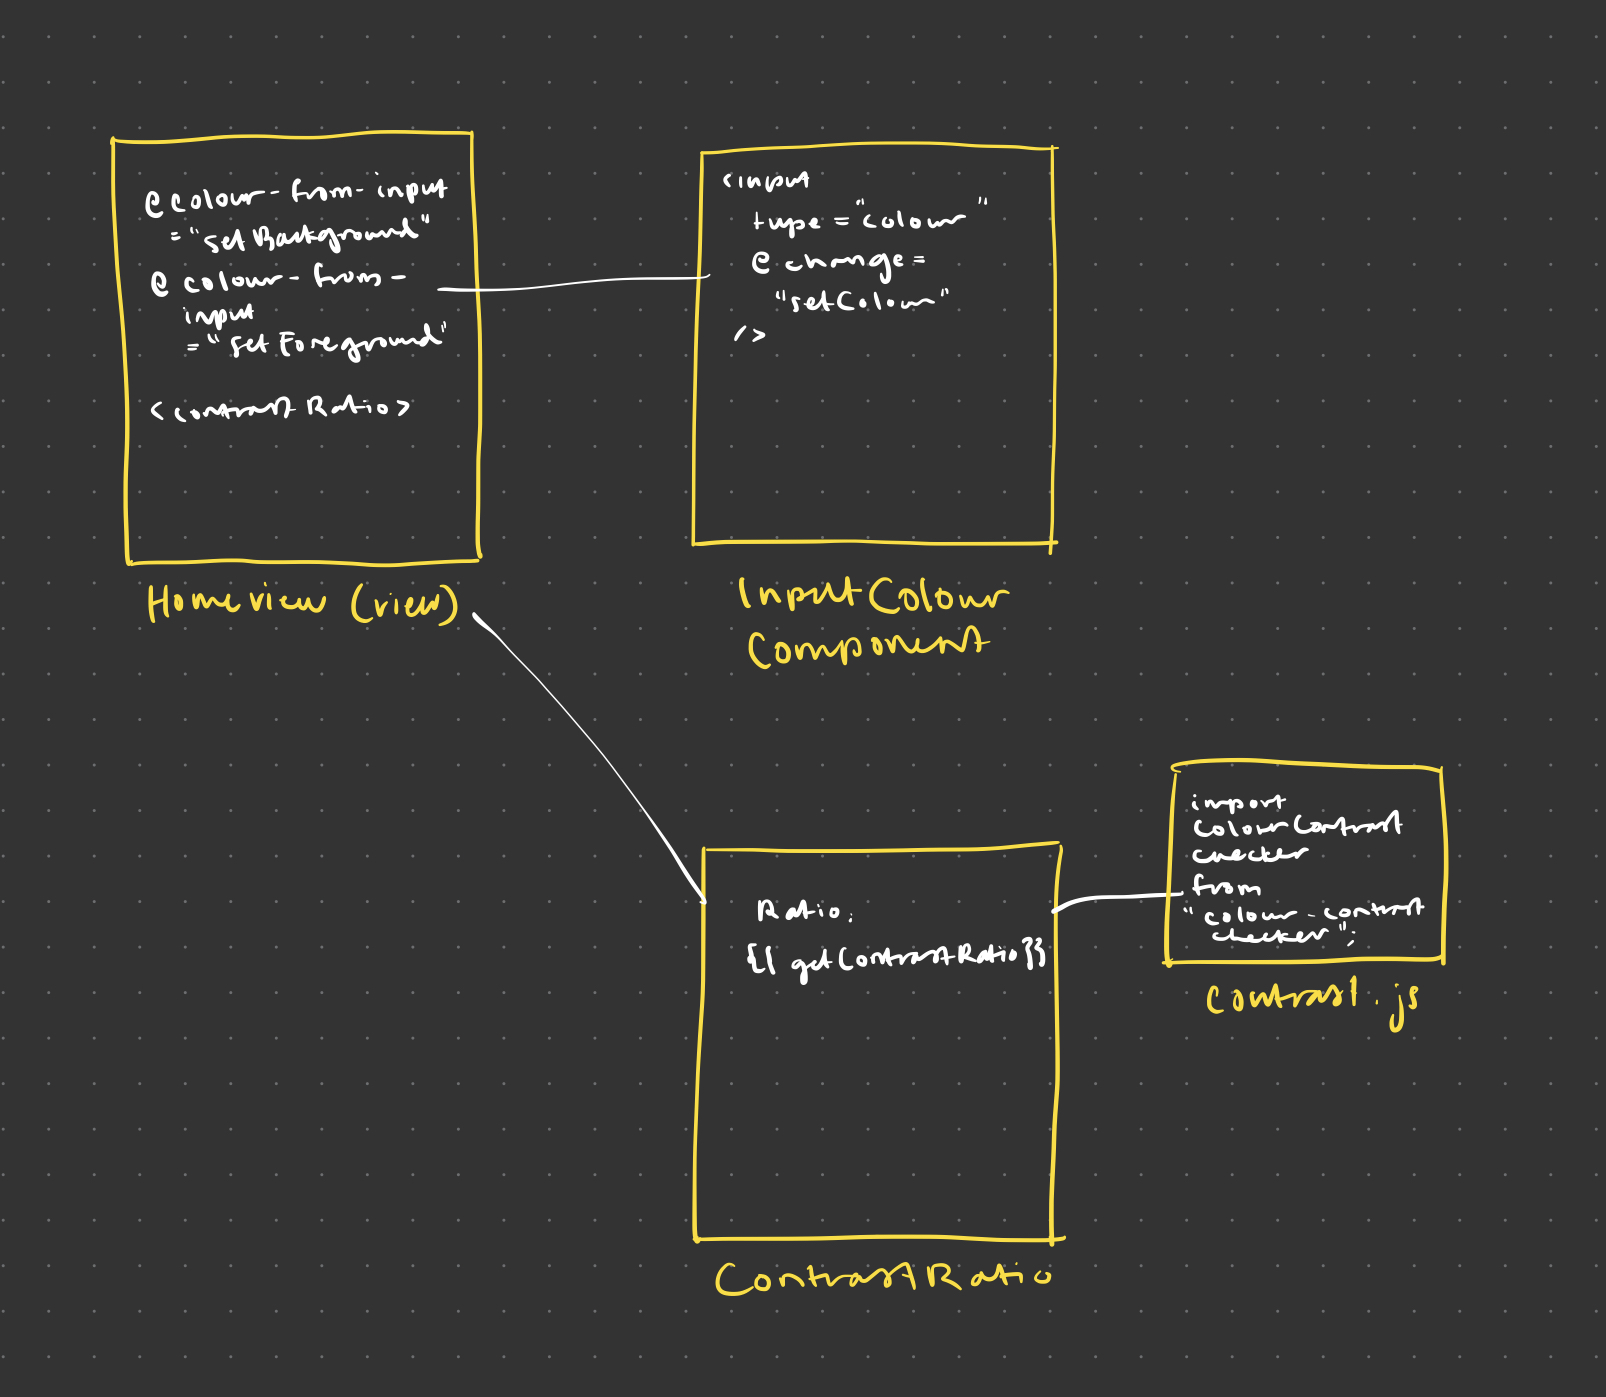 @colour-from-input
="setBackground"
@colour-from-
input
="setForeground"
<contrastRatio>
Homeview (view)
<input
type="colour"
@change=
"setColour"
/>
InputColour
Component
Ratio:
{{ getContrastRatio }}
ContrastRatio
import
ColourContrast
checker
from
"colour-contrast
checker";
contrast.js